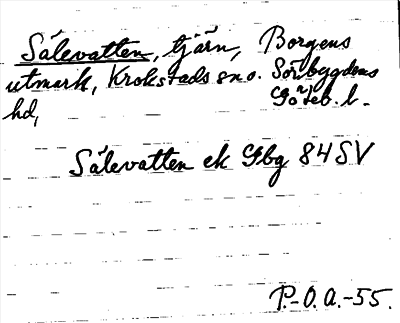 Sälevatten, tjärn, Borgens
utmark, Krokstads sn o. Sörbygdens
hd, Göteb. l.
Sälevatten ek Gbg 84 SV
P.-O.A.-55.